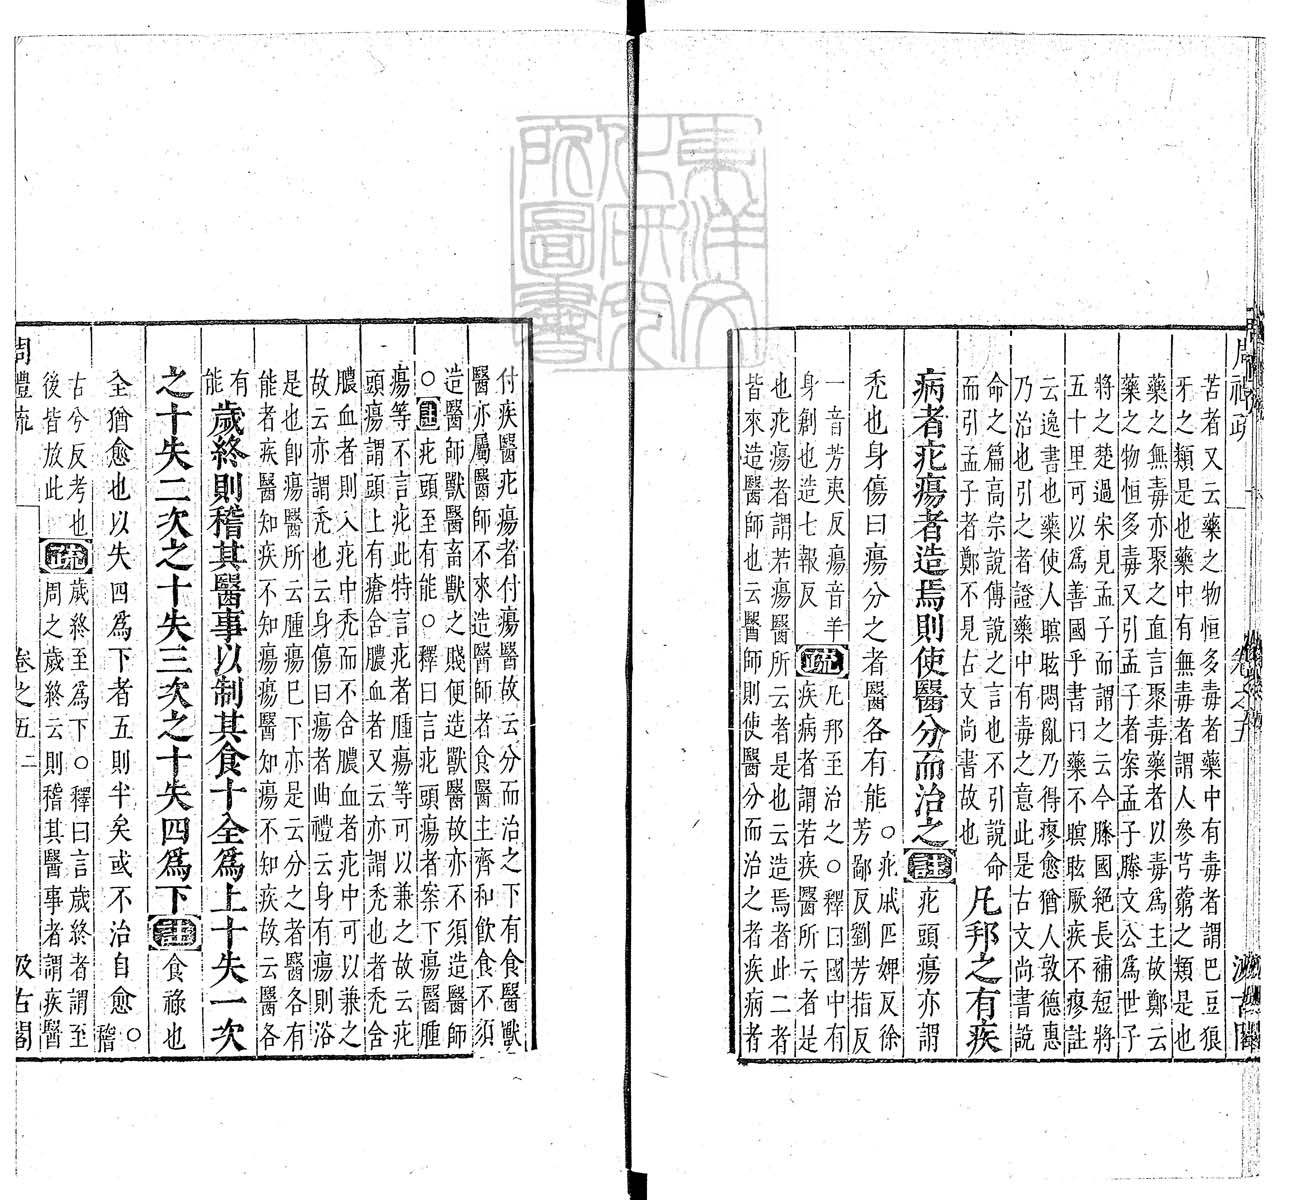 苦者又云藥之物恒多毒者藥中有毒者謂巴豆狼
牙之類是也藥中有無毒者謂人參芎藭之類是也
藥之無毒亦聚之直言聚毒藥者以毒爲主故鄭云
藥之物恒多毒又引孟子者案孟子滕文公爲世子
將之楚過宋見孟子而謂之云今滕國絕長補短將
五十里可以爲善國乎書曰藥不瞑眩厥疾不瘳註
云逸書也藥使人瞑眩悶亂乃得瘳愈猶人敦德惠
乃治也引之者證藥中有毒之意此是古文尚書說
命之篇高宗說傅說之言也不引說命
而引孟子者鄭不見古文尚書故也
凡邦之有疾
病者疕瘍者造焉則使醫分而治之註疕頭瘍亦謂
禿也身傷曰瘍分之者醫各有能
○疕戚匹婢反徐
芳鄙反劉芳指反
一音芳夷反瘍音羊
身創也造七報反
疏凡邦至治之○釋曰國中有
疾病者謂若疾醫所云者是
也疕瘍者謂若瘍醫所云者是也云造焉者此二者
皆來造醫師也云醫師則使醫分而治之者疾病者
付疾醫疕瘍者付瘍醫故云分而治之下有食醫獸
醫亦屬醫師不來造醫師者食醫主齊和飲食不須
造醫師獸醫畜獸之賤便造獸醫故亦不須造醫師
○註疕頭至有能○釋曰言疕頭瘍者案下瘍醫腫
瘍等不言疕此特言疕者腫瘍等可以兼之故云疕
頭瘍謂頭上有瘡含膿血者又云亦謂禿也者禿含
膿血者則入疕中禿而不含膿血者疕中可以兼之
故云亦謂禿也云身傷曰瘍者曲禮云身有瘍則浴
是也卽瘍醫所云腫瘍已下亦是云分之者醫各有
能者疾醫知疾不知瘍瘍醫知瘍不知疾故云醫各
有
能
歲終則稽其醫事以制其食十全爲上十失一次
之十失二次之十失三次之十失四爲下註食祿也
全猶愈也以失四爲下者五則半矣或不治自愈
○
稽
古兮反考也
後皆放此
疏歲終至爲下○釋曰言歲終者謂至
周之歲終云則稽其醫事者謂疾醫
周禮疏
卷之五
二
汲古閣
東洋文
化研究
所圖書